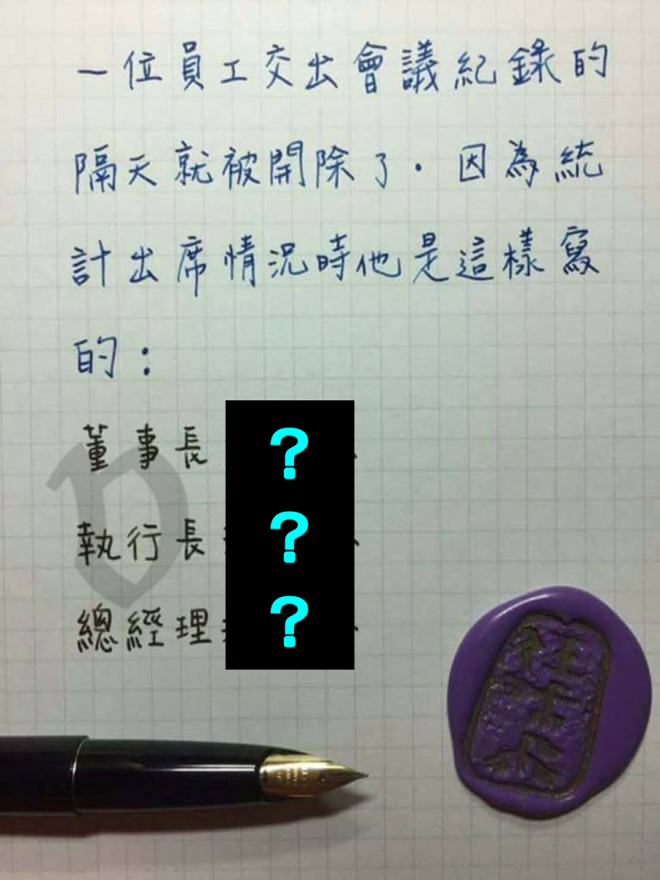 一位員工交出會議紀錄的
隔天就被開除了．因為統
計出席情況時他是這樣寫
的：
董事長 ?
執行長 ?
總經理 ?